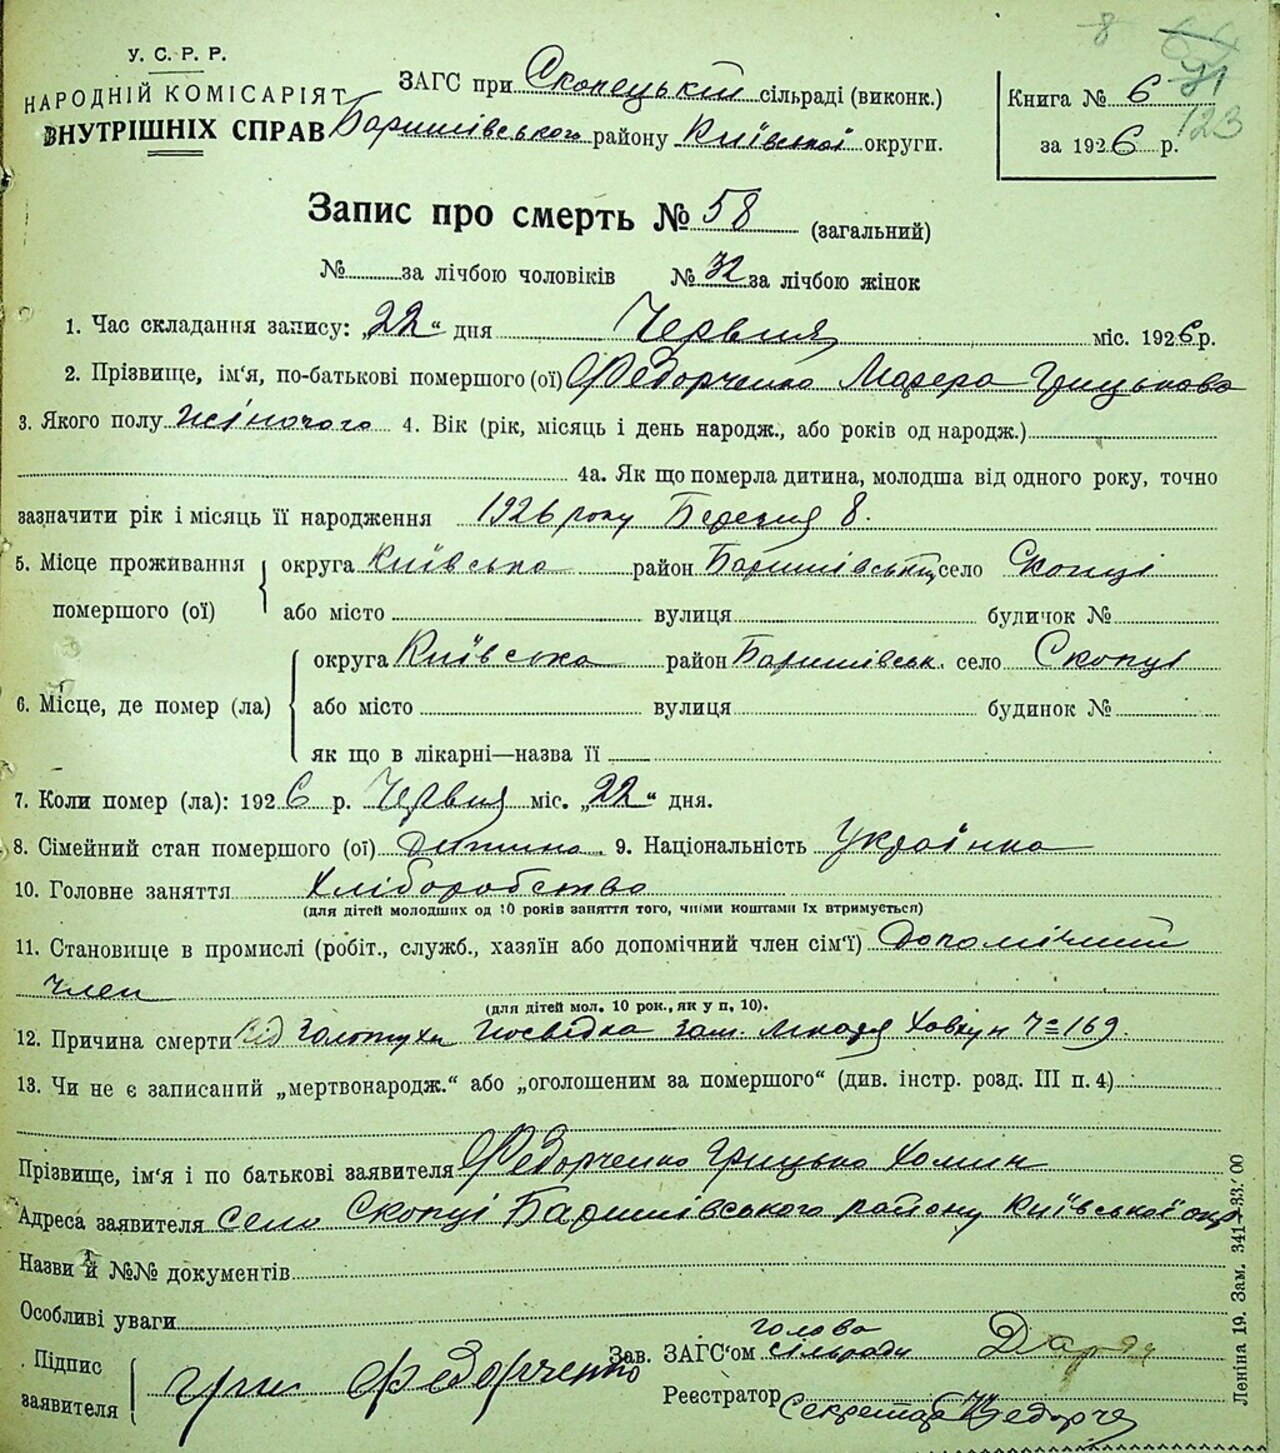 8
У. С. Р. Р.
НАРОДНІЙ КОМІСАРІЯТ
ВНУТРІШНІХ СПРАВ
ЗАГС при Скопецькій сільраді (виконк.)
Баришівського району Київської округи.
Книга № 6
71
123
за 1926 р.
Запис про смерть № 58 (загальний)
№ за лічбою чоловіків № 32 за лічбою жінок
1. Час складання запису: „22“ дня Червня міс. 1926 р.
2. Прізвище, ім'я, по-батькові помершого (ої) Федорченко Грицькова
3. Якого полу жіночого 4. Вік (рік, місяць і день народж., або років од народж.)
4а. Як що померла дитина, молодша від одного року, точно
зазначити рік і місяць її народження 1926 року Березня 8.
5. Місце проживання помершого (ої) округа Київська район Баришівський село Скопці
або місто вулиця будичок №
6. Місце, де помер (ла) округа Київська район Баришівськ. село Скопці
або місто вулиця будинок №
як що в лікарні—назва її
7. Коли помер (ла): 1926 р. Червня міс. „22“ дня.
8. Сімейний стан помершого (ої) дитина 9. Національність Українка
10. Головне заняття Хліборобство
(для дітей молодших од 10 років заняття того, чиїми коштами їх втримується)
11. Становище в промислі (робіт., служб., хазяїн або допомічний член сім'ї) допомічний
член
(для дітей мол. 10 рок., як у п. 10).
12. Причина смерти Від посвідка зам. лікаря Ховкун Ч= 169.
13. Чи не є записаний „мертвонародж.“ або „оголошеним за помершого“ (див. інстр. розд. III п. 4)
Прізвище, ім'я і по батькові заявителя Федорченко Грицько Хомин
Адреса заявителя село Скопці Баришівського району Київської окр
Назви й №№ документів
Особливі уваги
Підпис заявителя Гри Федорченко
Зав. ЗАГС'ом голова сільради
Реєстратор Секретар
Леніна 19. Зам. 341—33.00